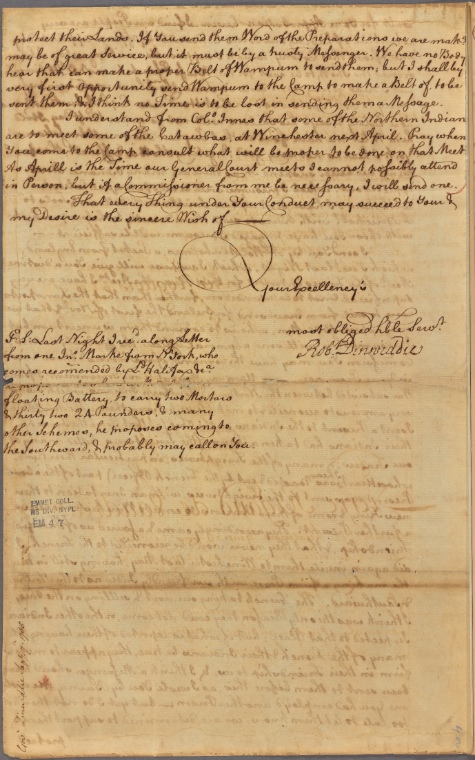 protect their Lands. If You send them Word of the Preparations we are makg
may be of great Service, but it must be by a trusty Messenger. We have no Body
hear that can make a proper Belt of Wampum to send them, but I shall by
very first Opportunity send Wampum to the Camp to make a Belt of, to be
sent them & I think no Time is to be lost in sending them a Message.
I understand from Colo. Innes that some of the Northern Indian
are to meet some of the Catawbas, at Winchester next April. Pray when
You come to the Camp consult what will be proper to be done on that Meet
As Aprill is the Time our General Court meets I cannot possibly attend
in Person, but if a Commissioner from me be necessary, I will send one.
That every Thing under Your Conduct, may succeed to Your &
my Desire is the sincere Wish of
Your Excellency's
most obliged hble Servt.
Robt. Dinwiddie
P.S. Last Night I recd. along Letter
from one Jno. Marke from N York, who
comes recomended by Ld. Halifax &ca
floating Battery to carry two Mortars
& thirty two 24 Pounders, & many
other Schemes, he proposes coming to
the Southward, & probably may call on You.
EMMET COLL.
MS DIV NYPL
EM 47